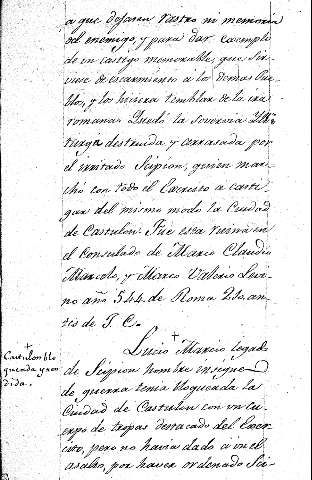 a que dejasen rastro ni memoria
del enemigo, y para dar exemplo
de un castigo memorable, que sir-
viese de escarmiento a los demas Pue-
blos, y los hiciera temblar de la ira
romana: Quedó la soverbia Illi-
turga destruida y arrasada por
el irritado Scipion, quien mar-
chó con todo el Exercito a casti-
gar del mismo modo la Ciudad
de Castulon. Fue esta ruina en
el Consulado de Marco Claudio
Marcelo, y Marco Valerio Levi-
no año 544 de Roma 210 an-
tes de J. C.
Castulon blo
queada y ren
dida.
Lucio Marcio legado
de Scipion hombre insigne
de guerra tenia bloqueada la
Ciudad de Castulon con un cu-
erpo de tropas destacado del Exer-
cito, pero no havia dado a in el
asalto, por haver ordenado Sci-